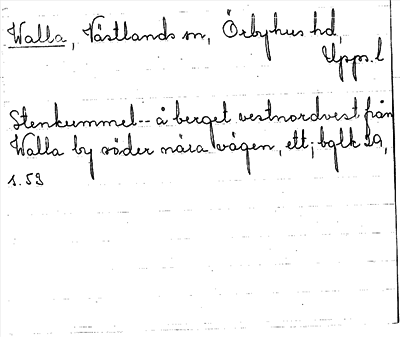 Walla, Västlands sn, Örbyhus hd,
Upps. l
Stenkummel -- å berget vestnordvest från
Walla by söder nära vägen, ett; bglk 29,
s. 53